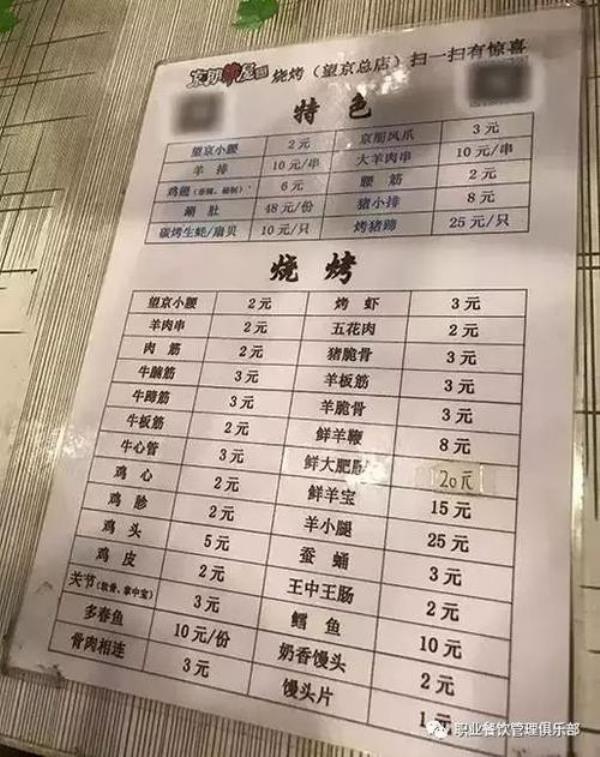 烧烤（望京总店）扫一扫有惊喜
特色
望京小腰 2元 凤爪 3元
羊排 10元/串 大羊肉串 10元/串
鸡翅 6元 腰筋 2元
涮肚 48元/份 猪小排 8元
碳烤生蚝/扇贝 10元/只 烤猪蹄 25元/只
烧烤
望京小腰 2元 烤虾 3元
羊肉串 2元 五花肉 2元
肉筋 2元 猪脆骨 3元
牛腩筋 3元 羊板筋 3元
牛蹄筋 3元 羊脆骨 3元
牛板筋 2元 鲜羊鞭 8元
牛心管 3元 鲜大肥肠 20元
鸡心 2元 鲜羊宝 15元
鸡胗 2元 羊小腿 25元
鸡头 5元 蚕蛹 3元
鸡皮 2元 王中王肠 2元
关节(软骨、掌中宝) 3元 鳕鱼 10元
多春鱼 10元/份 奶香馒头 2元
骨肉相连 3元 馒头片 1元
职业餐饮管理俱乐部